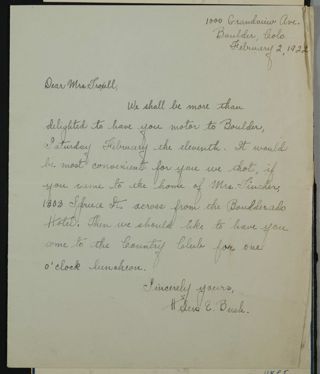 1000 Grandview Ave.
Boulder, Colo.
February 2, 1922
Dear Mrs.
We shall be more than
delighted to have you motor to Boulder,
Saturday February the eleventh. It would
be most convenient for you we think, if
you came to the home of Mrs. Fincher,
1303 Spruce St. across from the Boulderado
Hotel. Then we should like to have you
come to the Country Club for one
o'clock luncheon.
Sincerely yours,
E. Bush.